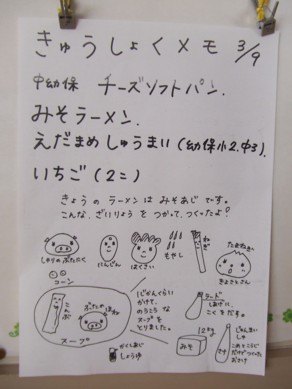 きゅうしょくメモ 3/9
中幼保. チーズソフトパン.
みそラーメン.
えだまめしゅうまい(幼保小2.中3).
いちご(2こ)
きょうのラーメンは みそあじです。
こんな、ざいりょうをつかって、つくったよ!
にんじん
はくさい
もやし
ねぎ
たまねぎ
コーン
こんぶ
ぶたのほね
スープ
1じかんくらい
かけて、
のうこうな
スープを
とりました。
ラード
しあげに、
こくをだす。
かくしあじ
しょうゆ
みそ
12kg
す